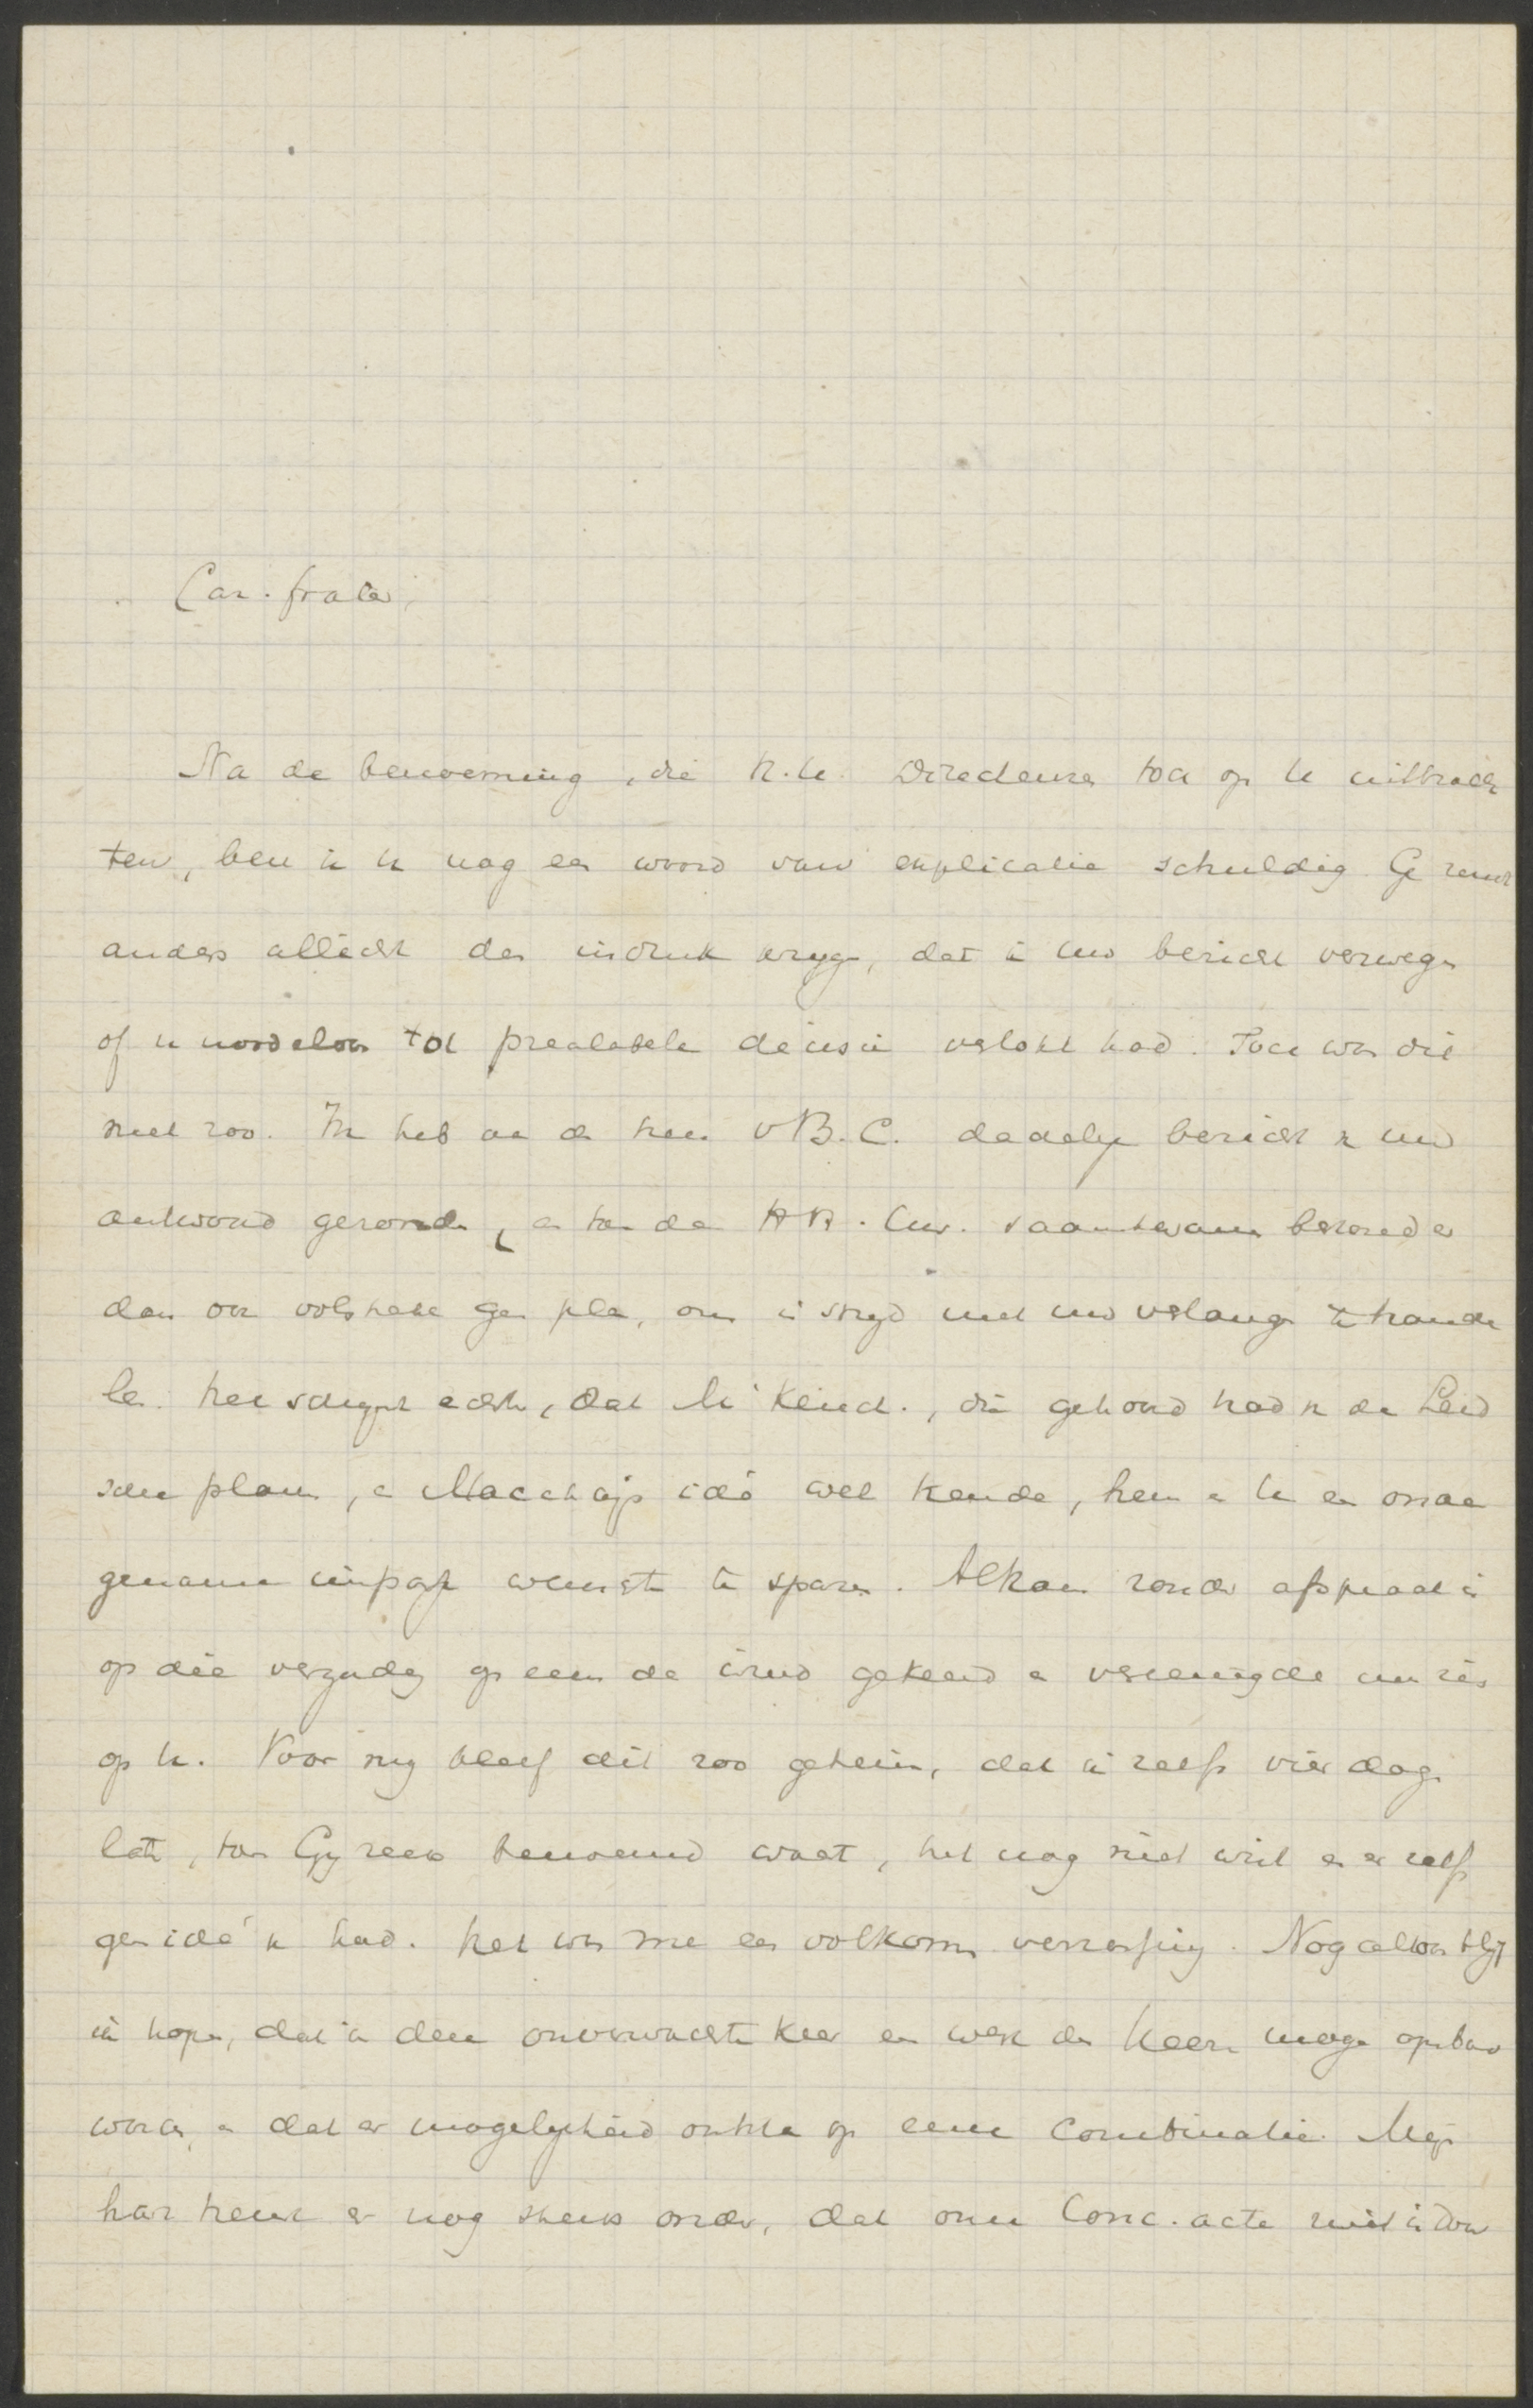 Car. frater,
Na de benoeming, die h.h. Directeuren toch op U uitbrach
ten, ben ik U nog een woord van explicatie schuldig Ge zoudt
anders allicht den indruk krijgen, dat ik uw bericht verzwegen
of U noodeloos tot prealabele decisie verlokt had. Toch was dit
niet zoo. Ik heb aan de heer v B. C. dadelijk bericht van uw
antwoord gezonden, en toen de HH. Cur. saamkwamen bestond er
dan ook volstrekt geen plan, om in strijd met uw verlangen te hande
len. Het schijnt echter, dat
die gehoord had van de Leid
sche plannen, en idé wel kende, hen en U een onaan
genamen wenschte te sparen. Althans zonder afspraak is
op die vergadering op eens de wind gekeerd en vereenigde men zich
op U. Voor mij bleef dit zoo geheim, dat ik zelfs vier dagen
later, toen Gij reeds benoemd waart, het nog niet wist en er zelfs
geen idé van had. Het was me een volkomen verrassing. Nog altoos blijf
ik hopen, dat in den onverwachten keer een werk des Heeren moge openbaar
worden, en dat er mogelijkheid ontsta op eene Combinatie. Mijn
hart heeft er nog steeds onder, dat onze Conc. acte niet in